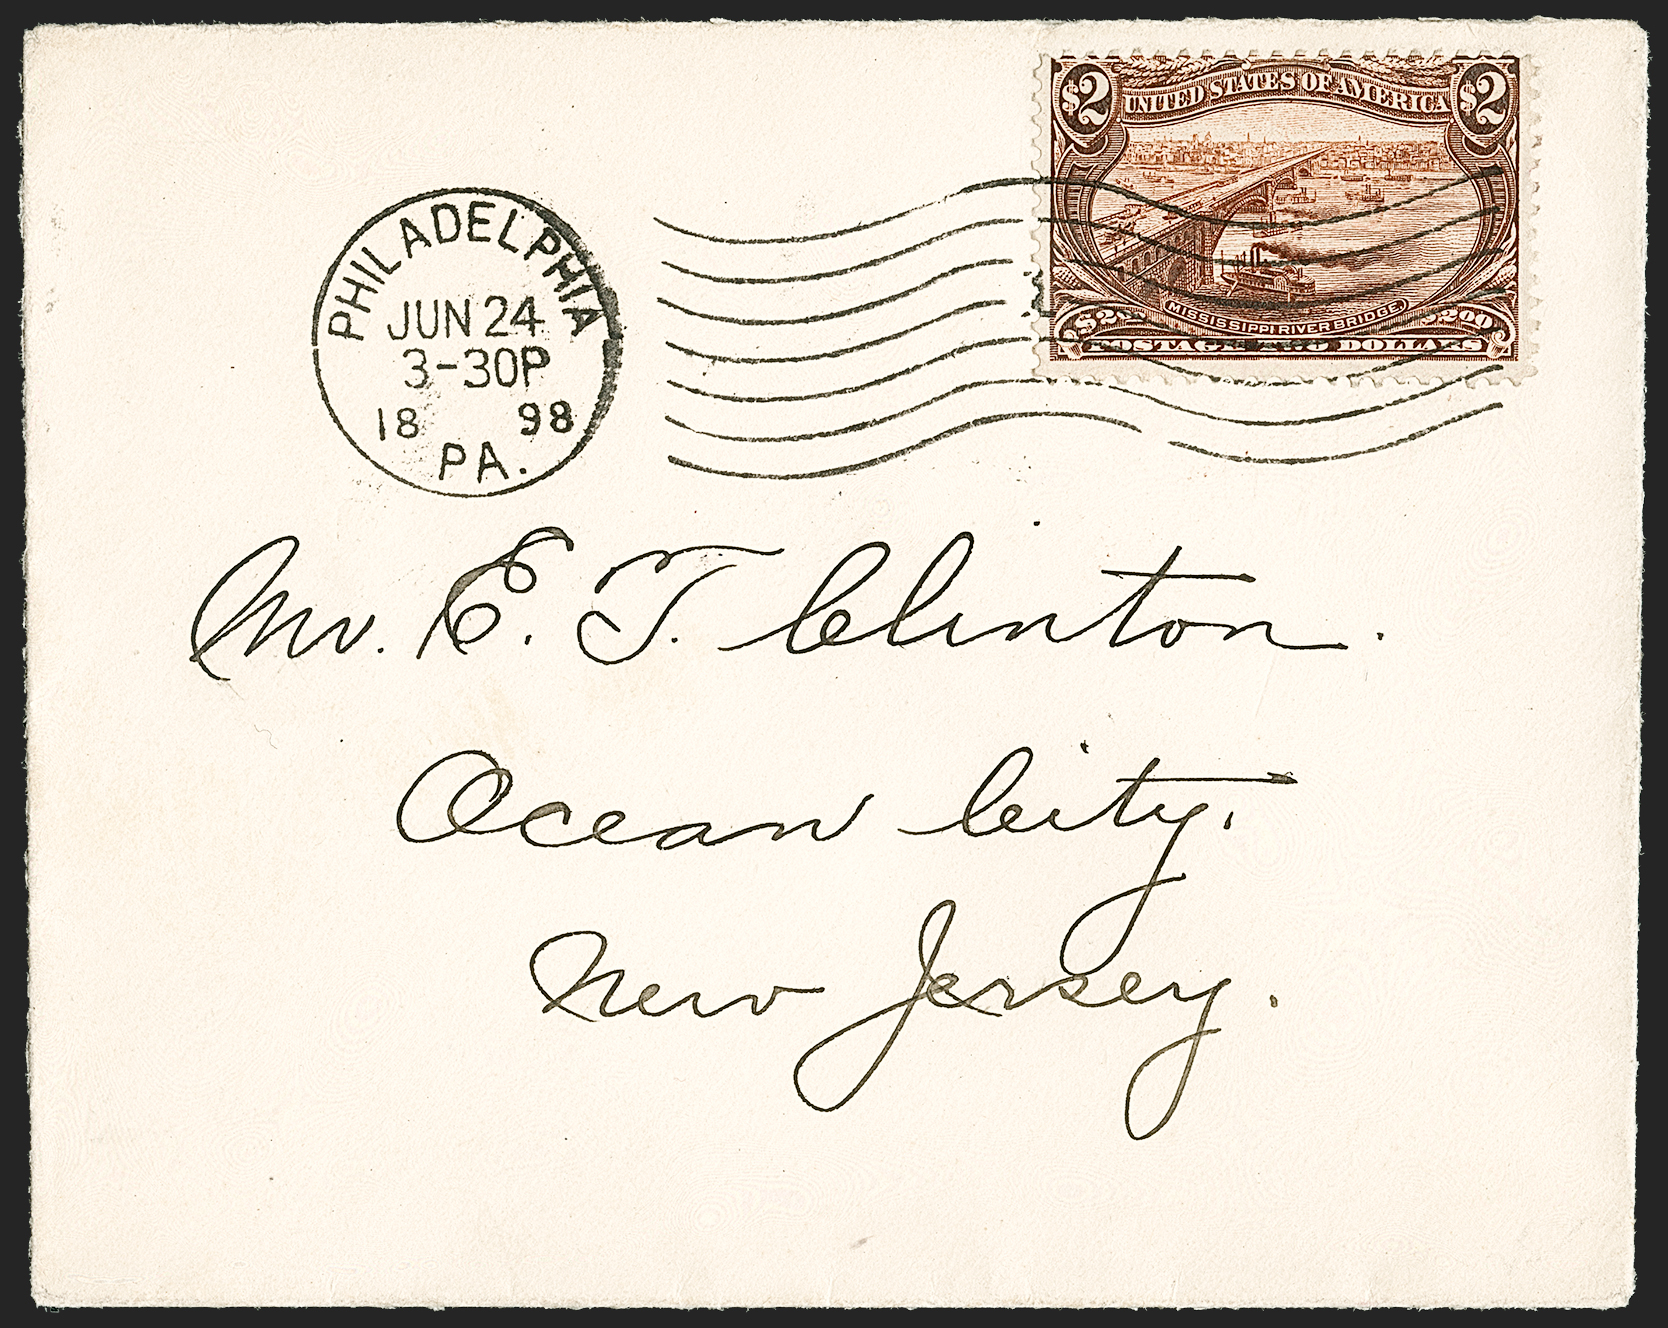 $2 UNITED STATES OF AMERICA $2
MISSISSIPPI RIVER BRIDGE
POSTAGE DOLLARS
PHILADELPHIA
JUN 24
3-30P
18 98
PA.
Mr. E. T. Clinton.
Ocean City,
New Jersey.